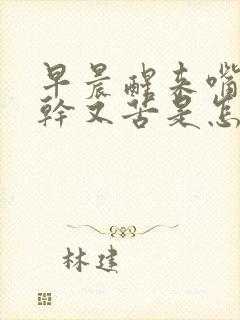 早晨醒来嘴
幹又苦是怎
林建